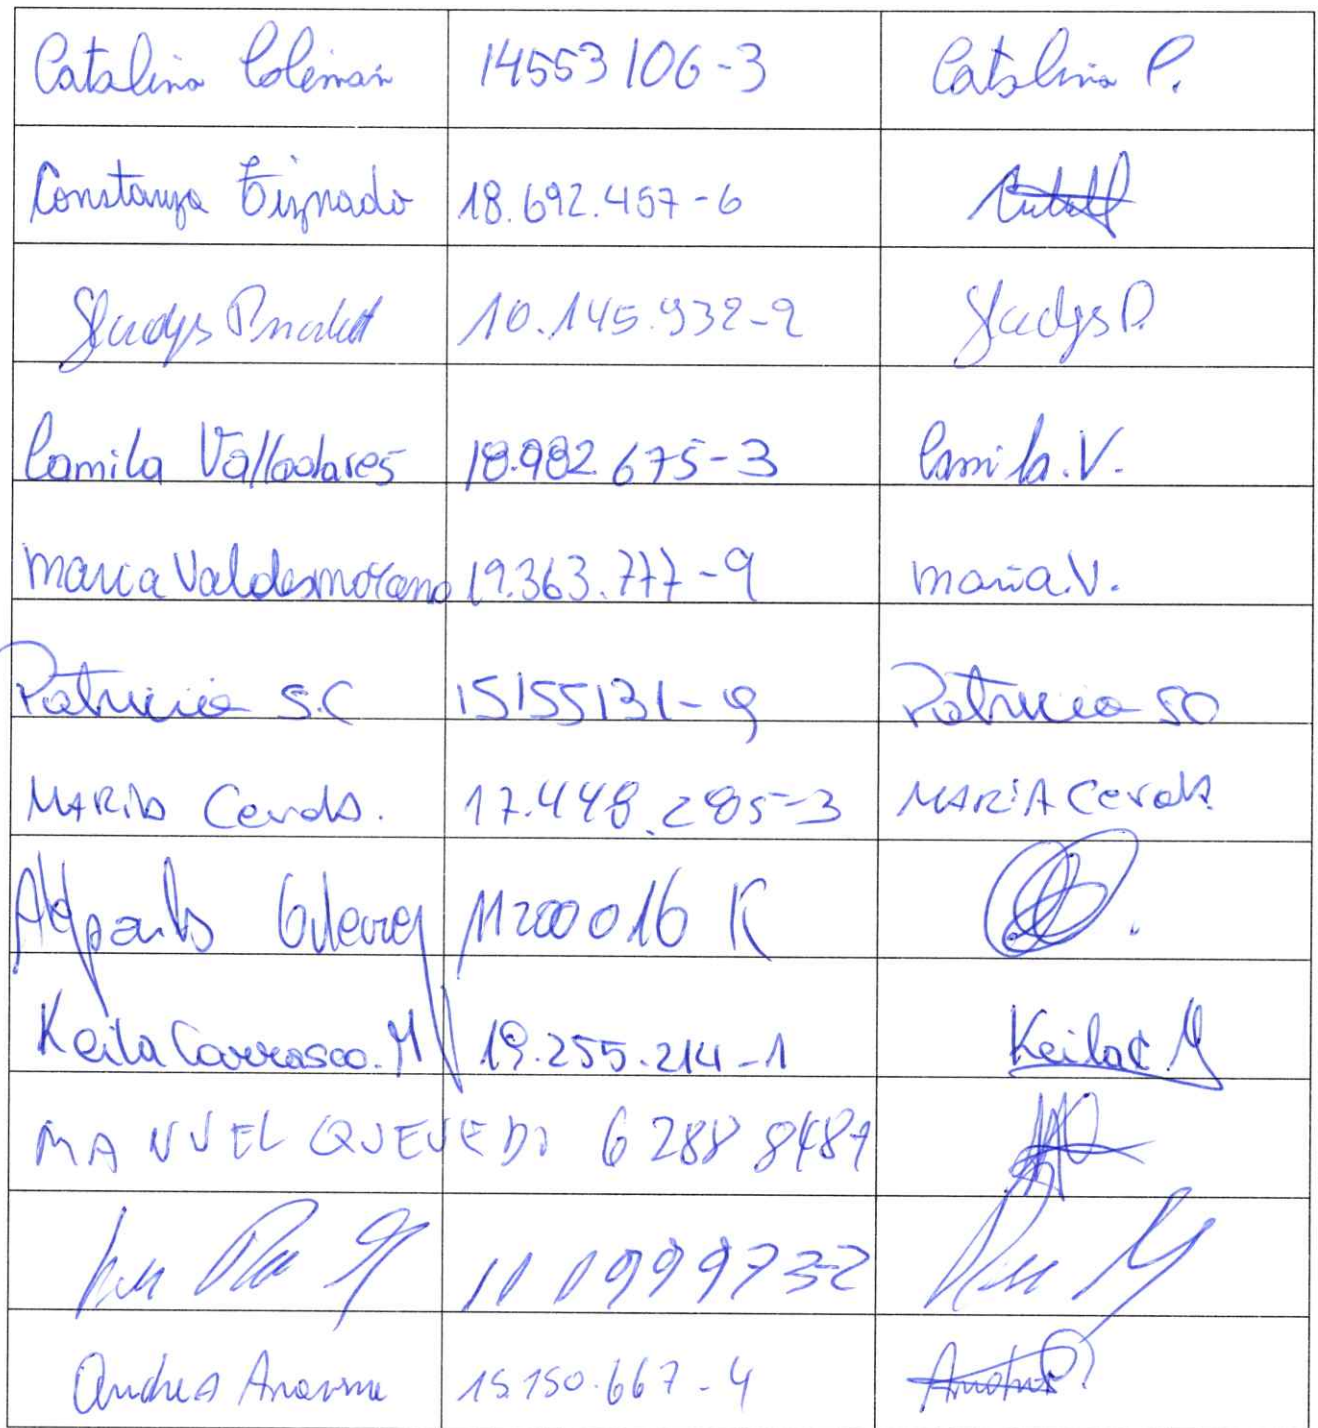 Catalina Coliman 14553106-3 Catalina P.
Constanza Tiznado 18.692.457-6
Gladys 10.145.932-2 Gladys P.
Camila Valladares 18.982.675-3 Camila.V.
maria Valdes moreno 19.363.777-9 maria.V.
Patricia S.C 15155131-9 Patricia SO
MARIA Cerda. 17.448.285-3 MARIA Cerda
11200016 K
Keila Carrasco.M 19.255.214-1 Keila C M
MANUEL QUEVEDO 6288 8481
11 199973-2
Andrea 15.150.667-4